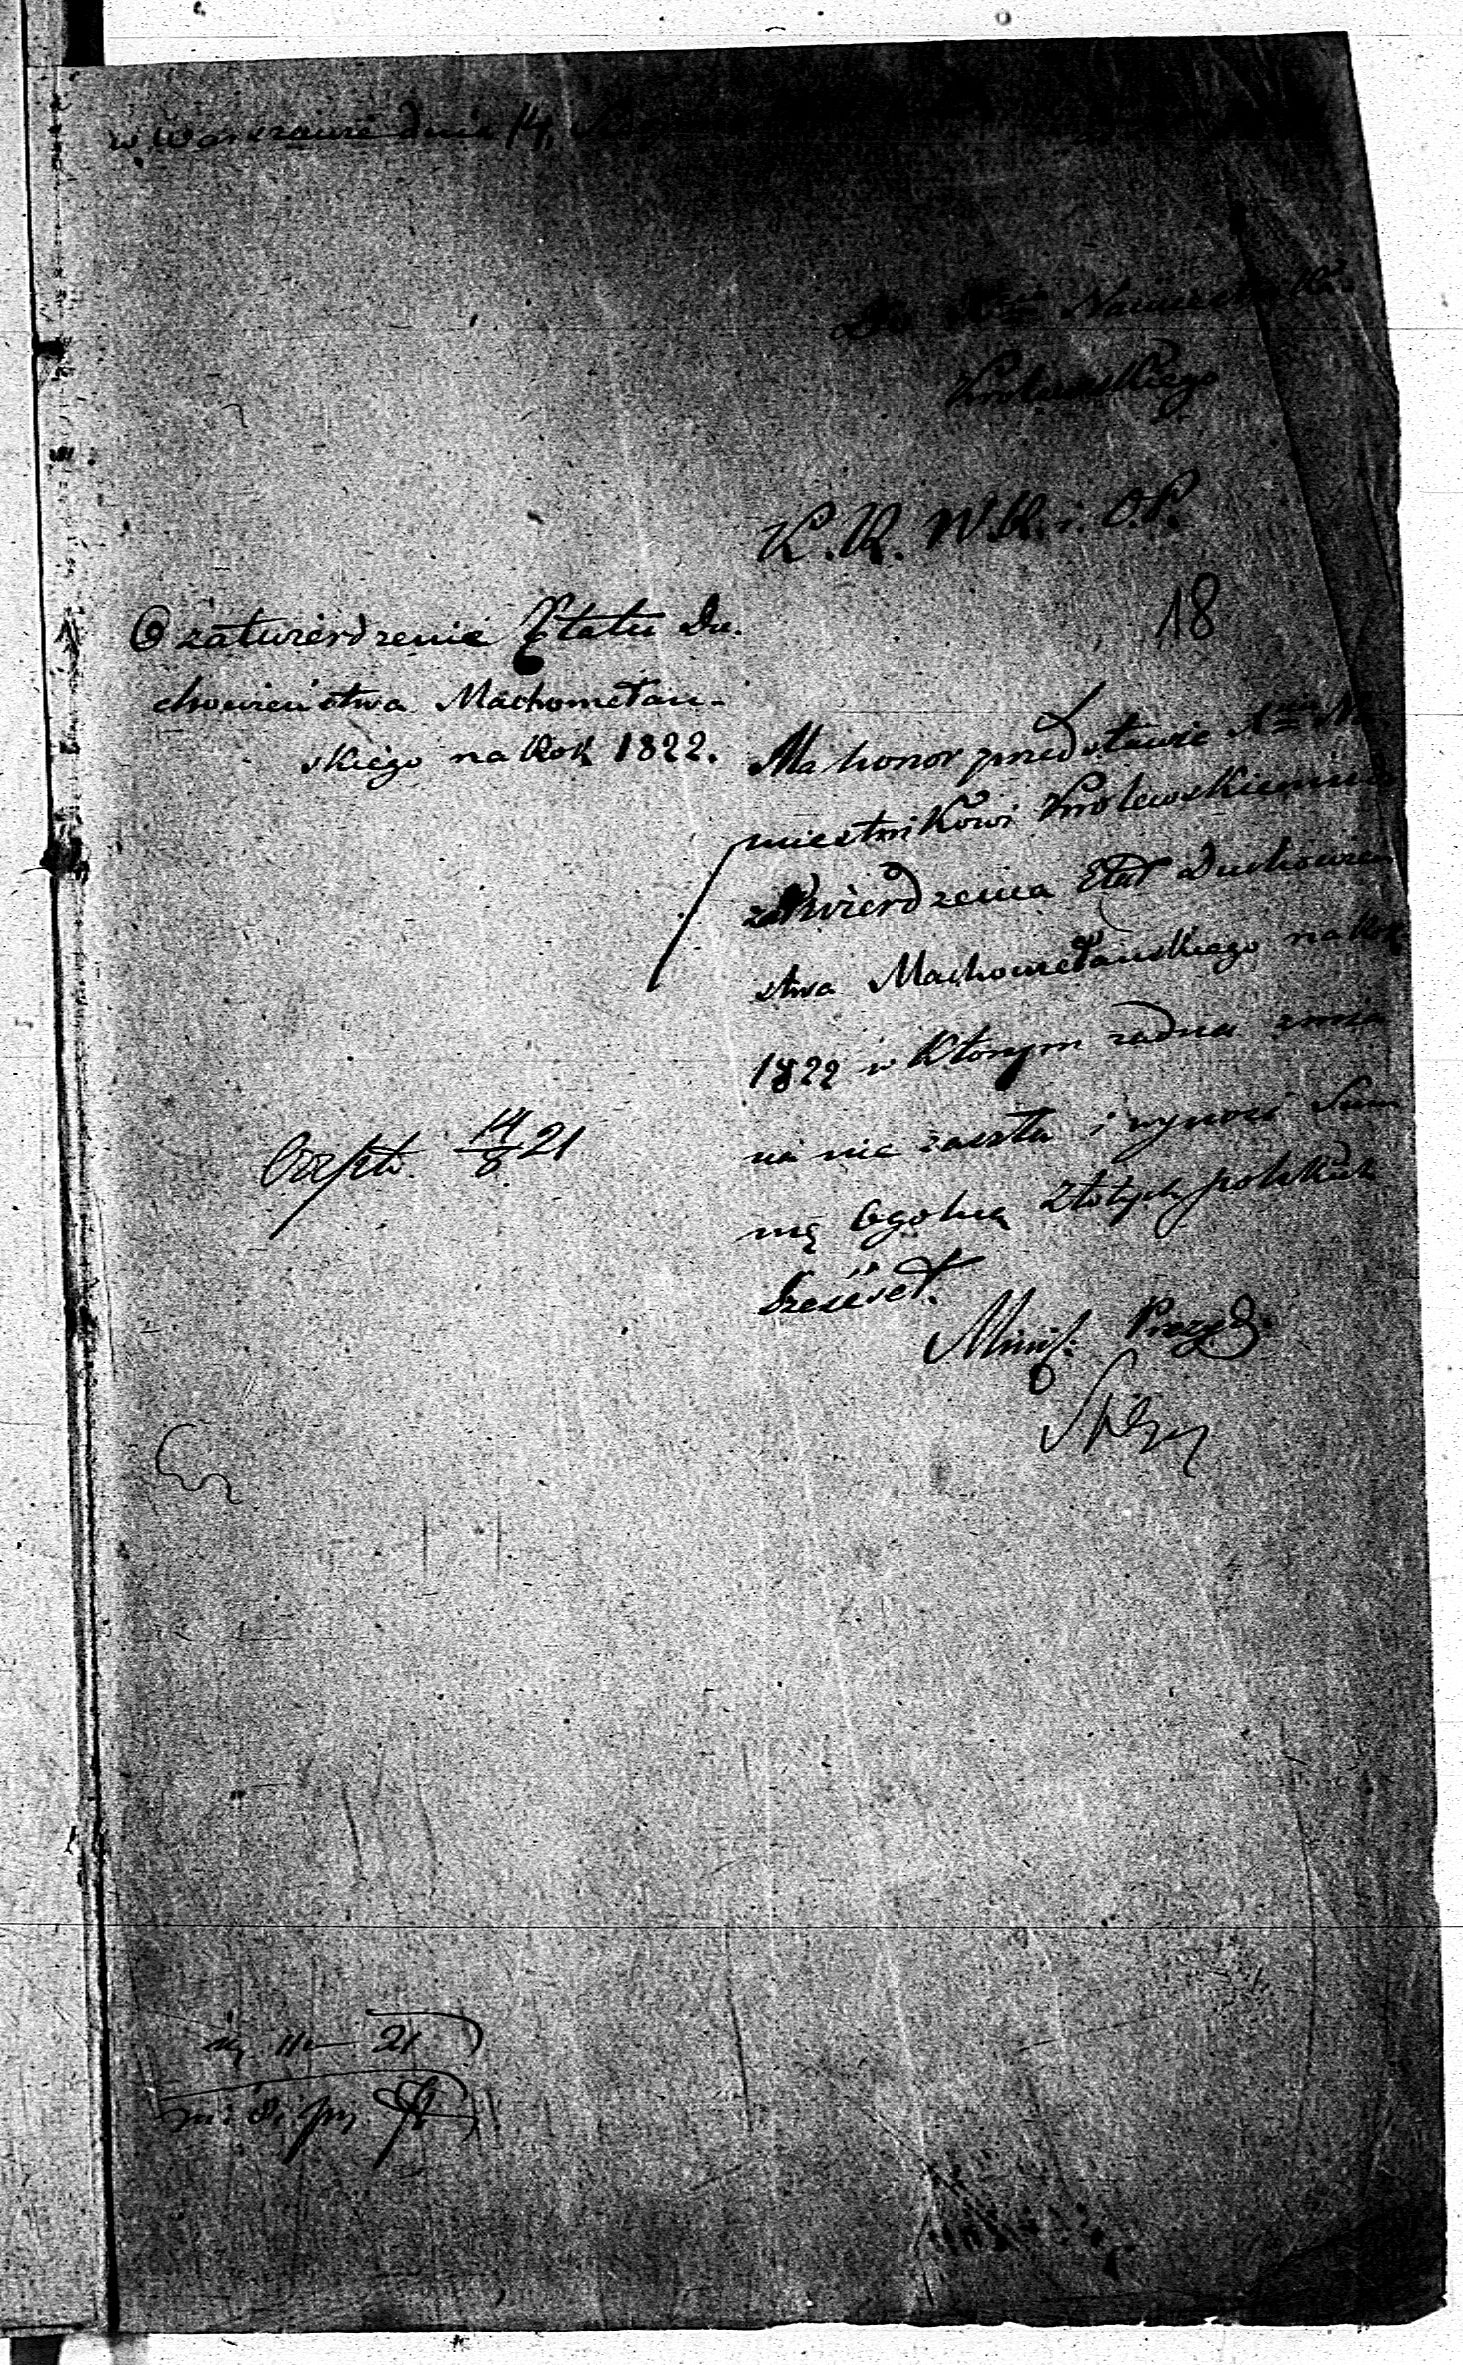 w Warszawie dnia 14 Sierpnia
Do Xcia Namiestnika
Królewskiego
K. R. W. R. i O. P.
18
O zatwierdzenie Etatu Du-
chowieństwa Machometań-
skiego na Rok 1822.
Ma honor przedstawić Xciu Na-
miestnikowi Królewskiemu do
zatwierdzenia Etat Duchowień
stwa Machometańskiego na Rok
1822 w którym żadna zmia
na nie zaszła i wynosi Sum
mę Ogolną złotych polskich
Sześćset.
Minis: Prezyd:
14/8 21